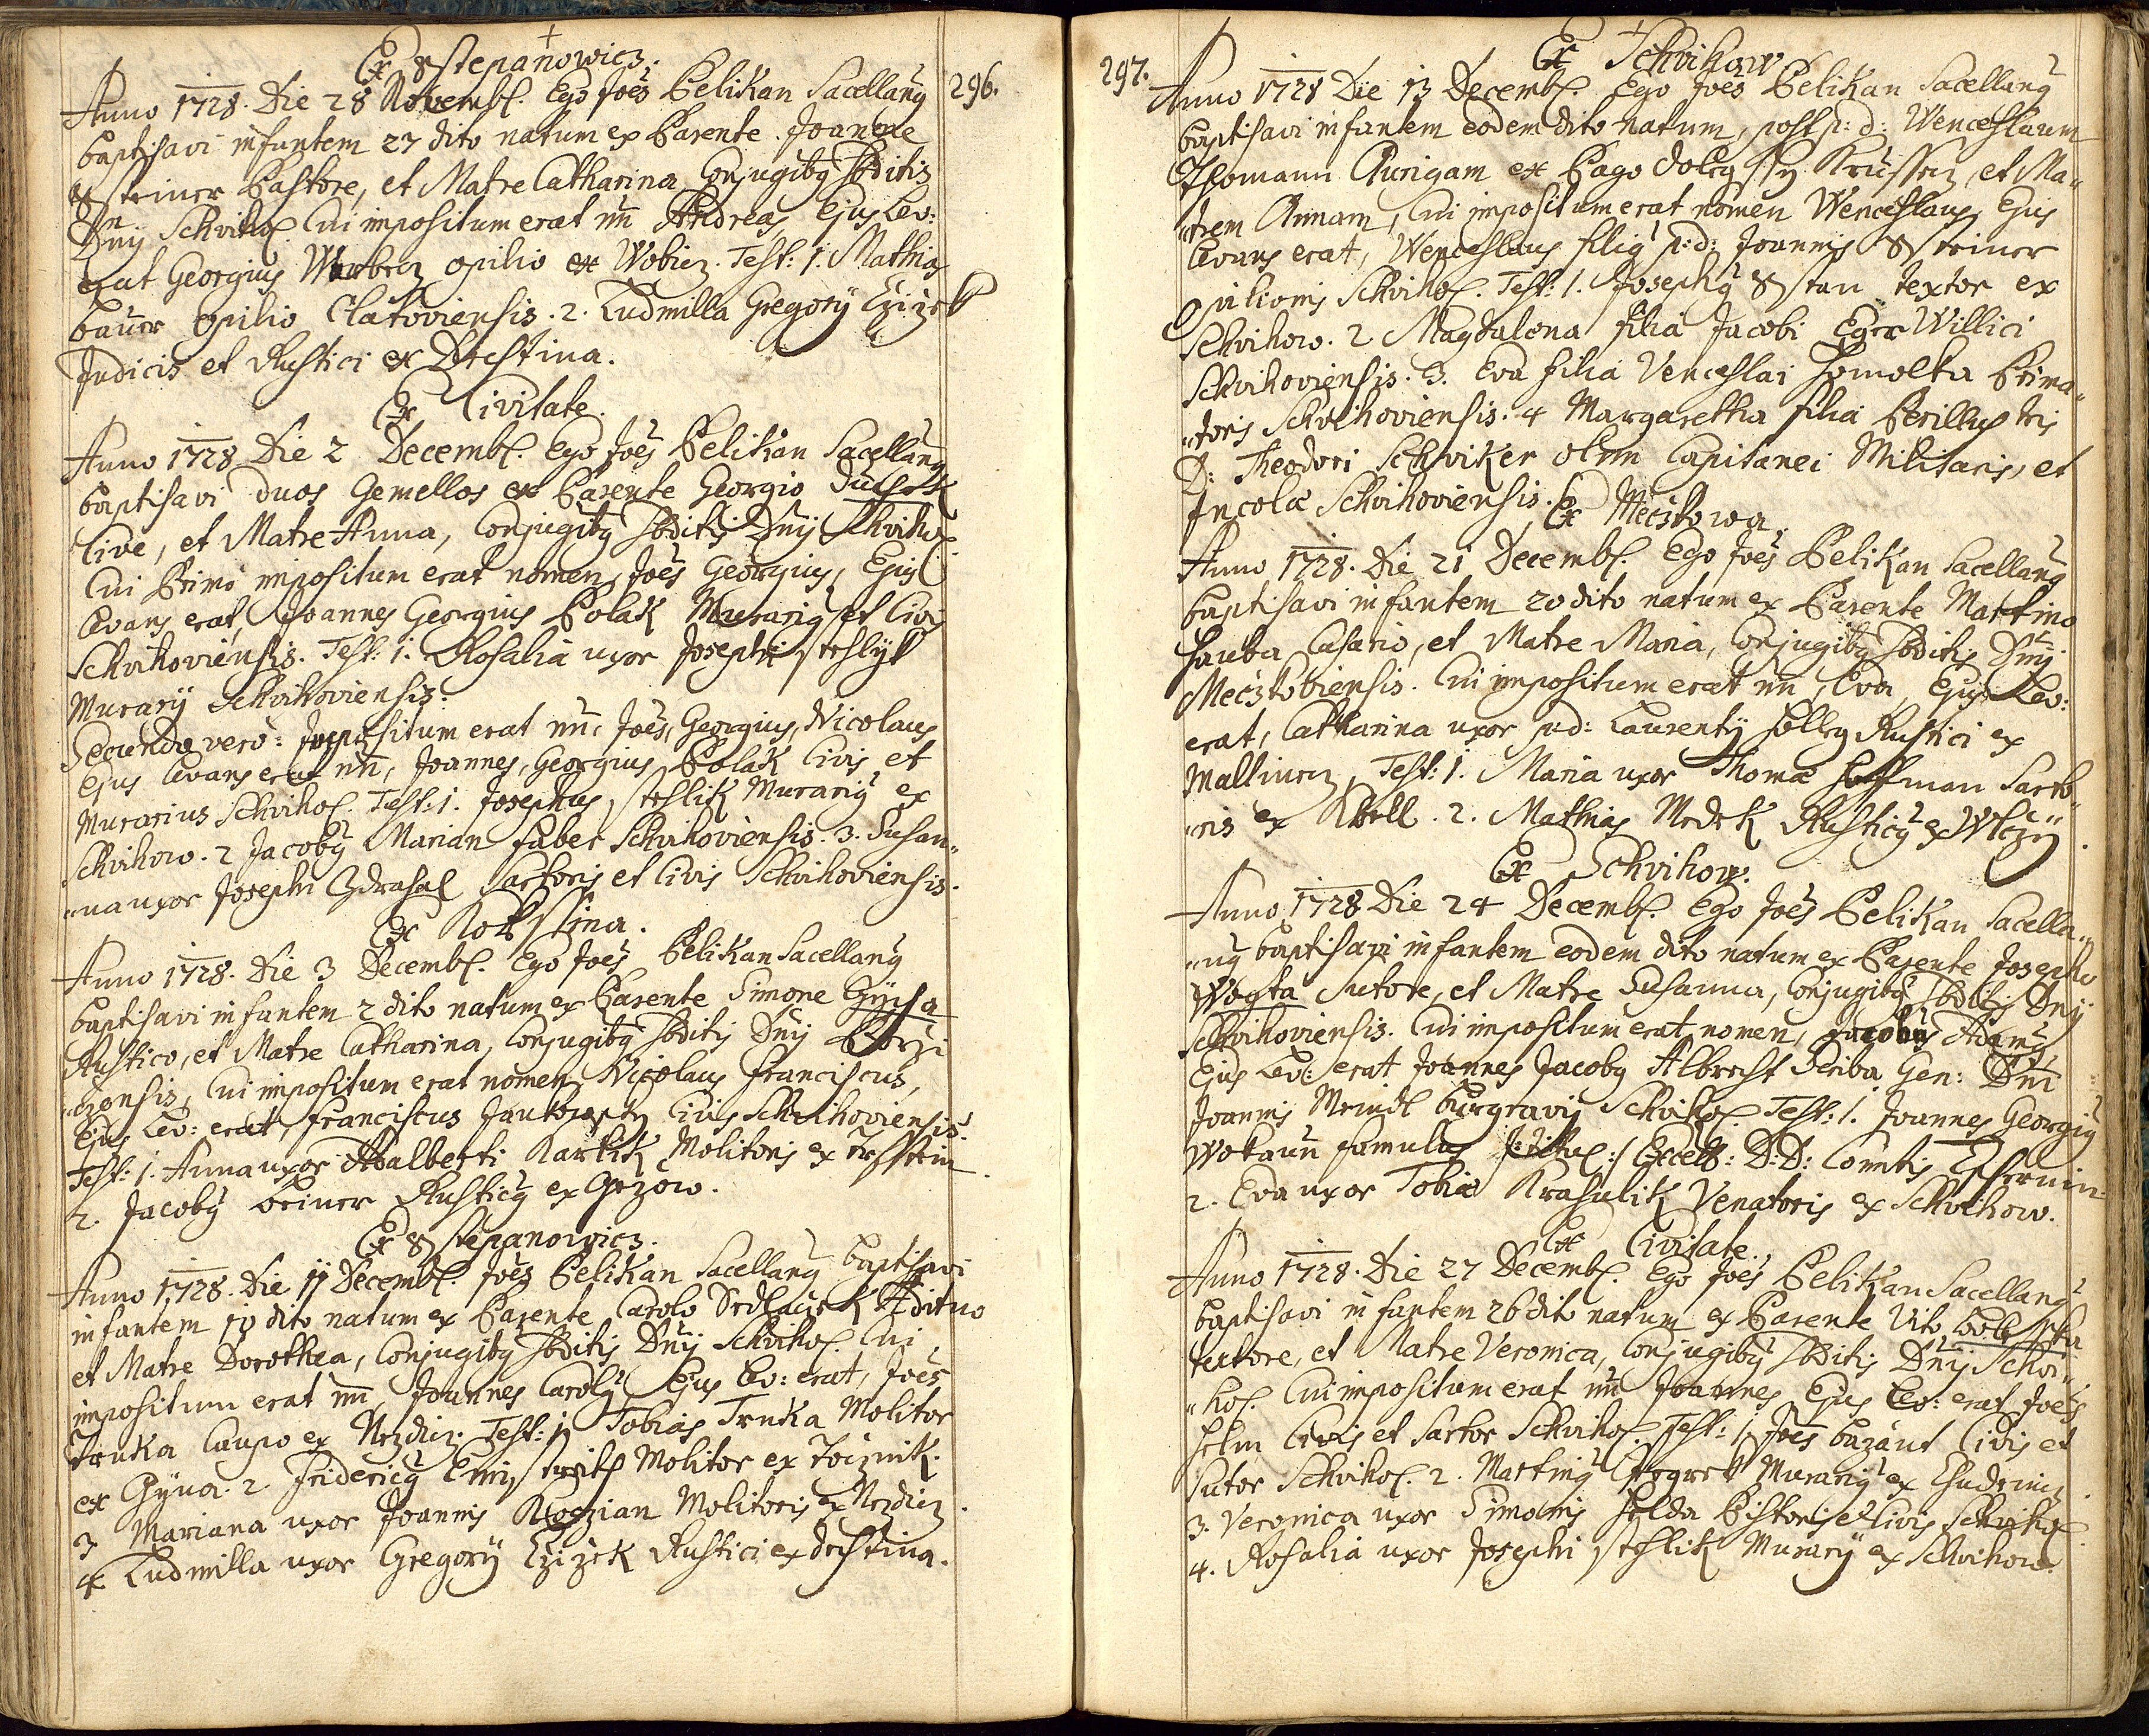 296.
Ex Sstepanowicz.
Anno 1728. Die 28 Novemb. Ego Joês Pelikan Sacellanq
baptisavi infantem 27 dito natum ex Parente Joanne
Sstriner Pastore, et Matre Catharina Conjugibq Sbditis
Dnÿ Schviho. Cui impositum erat nn Andreas, Ejus Lev:
erat Georgius opilio ex Wobicz. Test: 1. Mathias
bauer opilio Clatoviensis. 2. Ludmilla Gregorÿ Czizek
Judicis et Rustici ex Drestina.
Ex Civitate.
Anno 1728 Die 2 Decemb. Ego Joês Pelikan Sacellanq
baptisavi duos Gemellos ex Parente Georgio
Cive, et Matre Anna, Conjugibq Sbditis Dnÿ Schviho.
Cui Primo impositum erat nomen, Joês Georgius, Ejus
levans erat, Joannes Georgius Polak Murariq et Civis
Schvihoviensis. Test: 1. Rosalia uxor Josephi stehlyk
Murarÿ Schvihoviensis.
Secundo verò: Impositum erat nn, Joês, Georgius, Nicolaus
Ejus levans erat nn, Joannes, Georgius Polak Civis et
Murarius Schviho. Test: 1. Josephus stehlik Murariq ex
Schvihow. 2 Jacobq Marian faber Schvihoviensis. 3. Susan„
„na uxor Josephi Zdrahal Sartoris et Civis Schvihoviensis.
Ex Kokstina.
Anno 1728. Die 3 Decemb. Ego Joês Pelikan Sacellanq
baptisavi infantem 2 dito natum ex Parente Simone
Rustico, et Matre Catharina, Conjugibq Sbditis Dnÿ Borzi
„czensis, Cui impositum erat nomen Nicolaus Franciscus,
Ejus Lev: erat, Franciscus Civis Schvihoviensis.
Test: 1. Anna uxor Adalberti Kartik Molitoris ex
2. Jacobq beiner Rusticq ex Gezow.
Ex Sstepanowicz.
Anno 1728. Die 11 Decemb. Joês Pelikan Sacellanq baptisavi
infantem 10 dito natum ex Parente Carolo Sedlaczek Ædituo
et Matre Dorothea, Conjugibq Sbditis Dnÿ Schviho. Cui
impositum erat nn, Joannes Carolq Ejus Lev: erat, Joês
Trnka Caupo ex Nezdicz. Test: 1. Tobias Trnka Molitor
ex Gÿna. 2 Fridericq Molitor ex Tocznik.
3 Mariana uxor Joannis Kogzian Molitoris ex Nezdicz.
4 Ludmilla uxor Gregorÿ Czizek Rustici ex drestina.
297.
Ex Schvihow.
Anno 1728 Die 13 Decemb. Ego Joês Pelikan Sacellanq
baptisavi infantem eodem dito natum, post p: d: Wenceslaum
Thomann Aurigam ex Pago doleg ssy Krussecz, et Ma„
„trem Annam, Cui impositum erat nomen Wenceslaus, Ejus
levans erat, Wenceslaus filiq p: d: Joannis Sstriner
Opilionis Schviho. Test: 1. Josephq Sstan textor ex
Schvihow. 2 Magdalena filia Jacobi Eger Willici
Schvihoviensis. 3. Eva filia Venceslai Homolka Prima„
„toris Schvihoviensis. 4 Margaretha filia Perillustris
D: Theodori Schviker olim Capitanei Militaris, et
Incolæ Schvihoviensis. Ex Meczkowa.
Anno 1728. Die 21 Decemb. Ego Joês Pelikan Sacellanq
baptisavi infantem 20 dito natum ex Parente Martino
hauba Casario, et Matre Maria, Conjugibq Sbditis Dnÿ
Meczkoviensis. Cui impositum erat nn, Eva, Ejus Lev:
erat, Catharina uxor p: d: Laurentÿ holley Rustici ex
Mallinecz, Test: 1. Maria uxor Thomæ hoffman Sarto„
„ris ex Kbell. 2. Mathias Medek Rusticq ex Wlczÿ.
Ex Schvihow.
Anno 1728 Die 24 Decemb. Ego Joês Pelikan Sacella„
„nq baptisavi infantem eodem dito natum ex Parente Josepho
Wogta Sutore, et Matre Susanna, Conjugibq Sbditis Dnÿ
Schvihoviensis. Cui impositum erat nomen, Jacobus Adamq
Ejus Lev: erat Joannes Jacobq Albrecht Scriba Gen: Dni
Joannis Meindl burgravÿ Schviho. Test: 1. Joannes Georgiq
Wokaun famulus Excell: D: D: Comitis Czernin.
2. Eva uxor Tobiæ Krasulik Venatoris ex Schvihow.
Ex Civitate.
Anno 1728. Die 27 Decemb. Ego Joês Pelikan Sacellanq
baptisavi infantem 26 dito natum ex Parente Vito
textore, et Matre Veronica, Conjugibq Sbditis Dnÿ Schvi„
„ho. Cui impositum erat nn Joannes, Ejus Lev: erat Joês
helm Civis et Sartor Schviho. Test: 1. Joês bazant Civis et
Sutor Schviho. 2. Martinq Murariq ex Chudenicz.
3. Veronica uxor Simonis Holda Pistoris et Civis Schviho.
4. Rosalia uxor Josephi stehlik Murarÿ ex Schvihow.